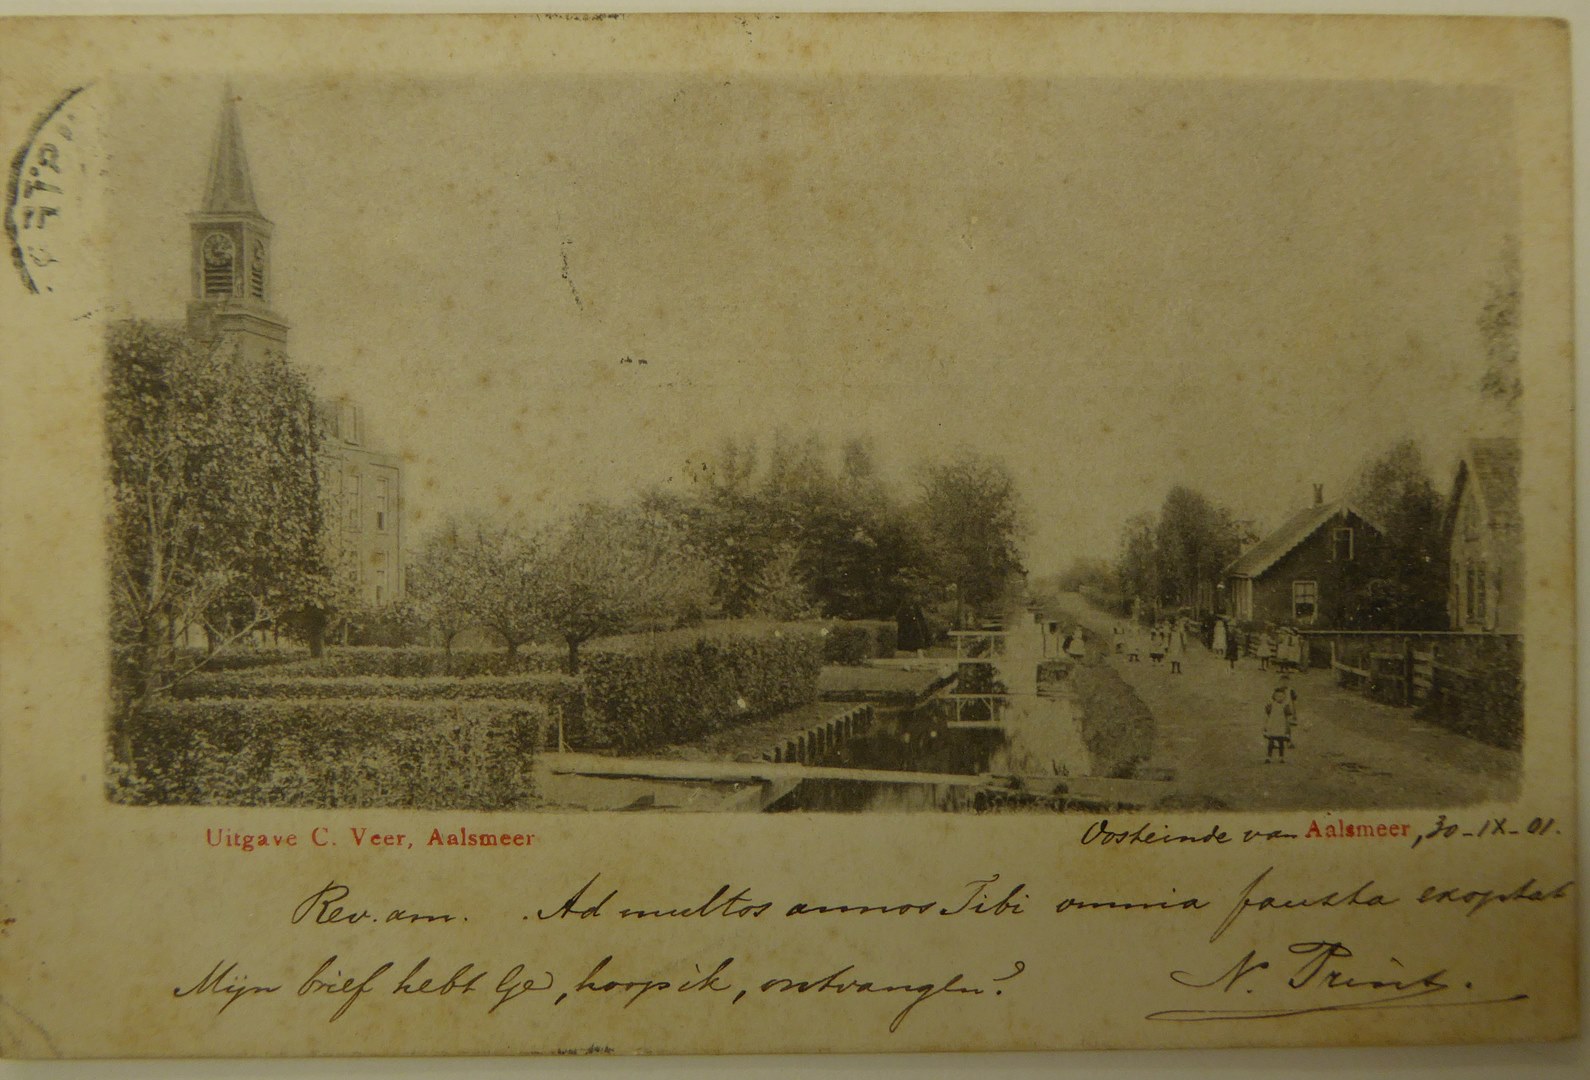 Uitgave C. Veer, Aalsmeer
Oosteinde van Aalsmeer, 30-IX-01.
Rev. am. Ad multos annos Tibi omnia fausta exoptat
Mijn brief hebt Ge, hoop ik, ontvangen?
N. Prins.